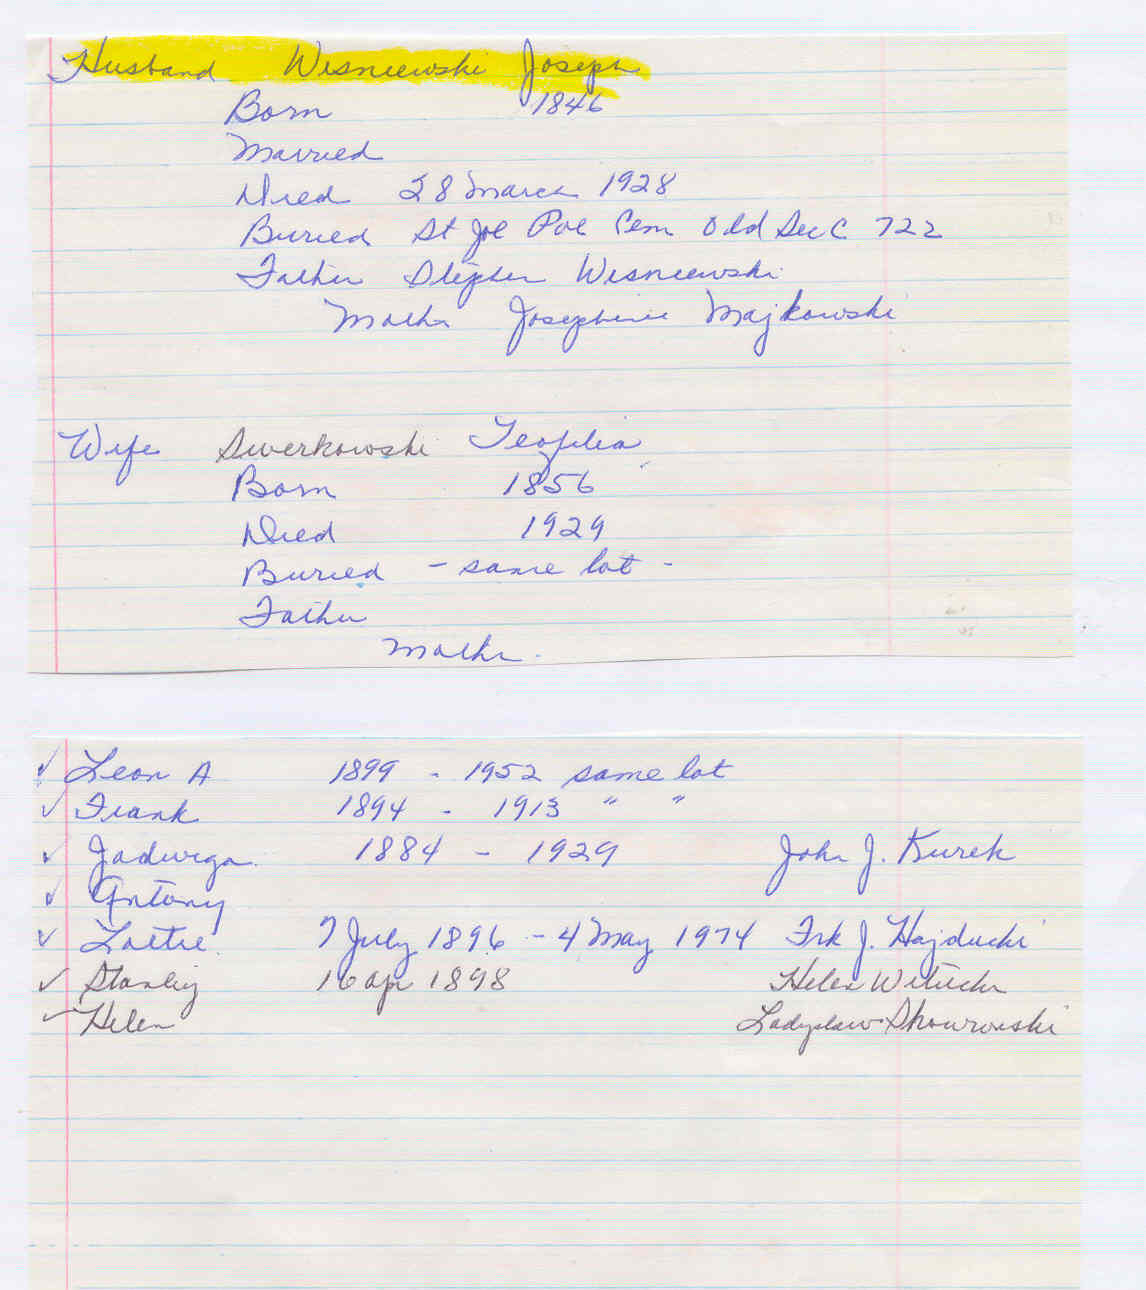 Husband Wisniewski Joseph
Born 1846
Married
Died 28 March 1928
Buried St Joe Pol Cem Old Sec C 722
Father Stephen Wisniewski
Mother Josephine Majkowski
Wife Swerkowski Teofilia
Born 1856
Died 1929
Buried - same lot -
Father
Mother
✓ Leon A 1899 - 1952 same lot
✓ Frank 1894 - 1913 " "
✓ Jadwiga 1884 - 1929 John J. Kurek
✓ Antony
✓ Lottie 7 July 1896 - 4 May 1974 Frk J. Hajducki
✓ Stanley 16 Apr 1898 Helen
✓ Helen Ladyslaw Skowronski